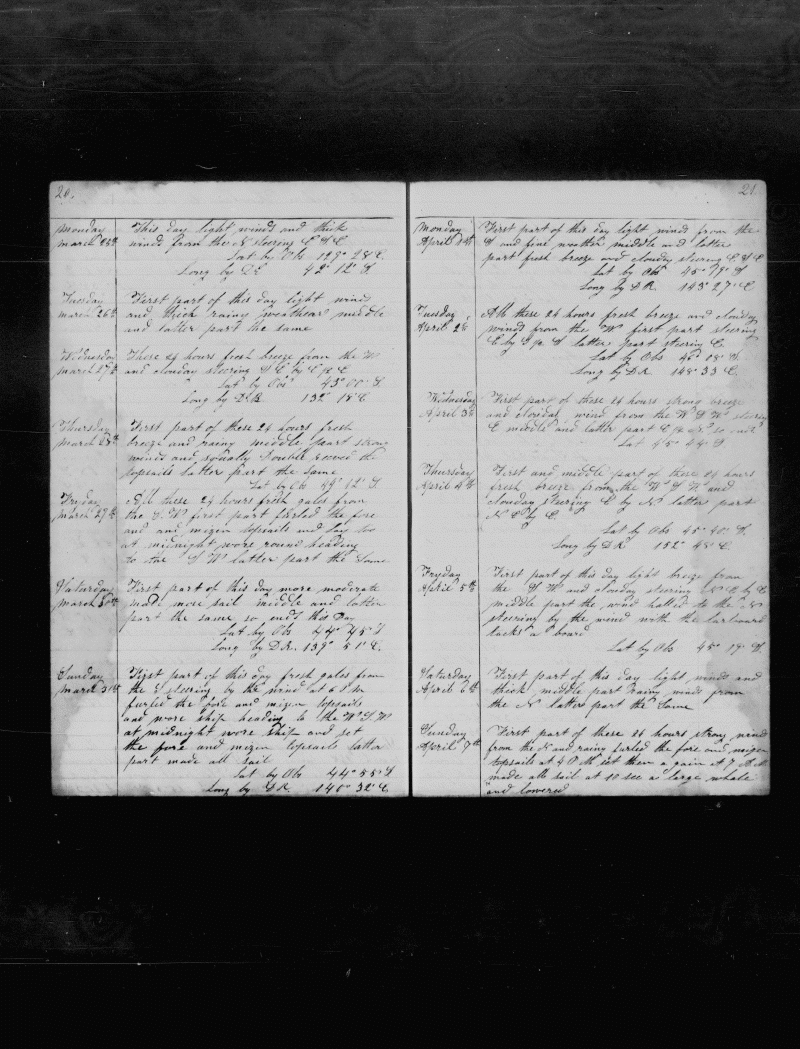 20.
Monday This day light winds and thick
March 25th winds from the N steering E S E
Lat by Obs 129° 28' E
Long by D R 42° 12' S
Tuesday First part of this day light wind
March 26th and thick rainy weather middle
and latter part the same
Wednsday These 24 hours fresh breeze from the W
March 27th and clouday steering S E by E
Lat by Obs 43° 00' S
Long by D R 132° 15' E
Thursday First part of these 24 hours fresh
March 28th breeze and rainy middle part strong
winds and squally Double reeved the
topsails latter part the same
Lat by Obs 12' S
Fryday All these 24 hours fresh gales from
March 29th the S. W first part furled the fore
and and mizen topsails and lay too
at midnight wore round heading
to the S W latter part the same
Saturday First part of this day more moderate
March 30th made more sail middle and latter
part the same so ends this Day
Lat by Obs 44° 45' S
Long by D.R. 139° 51' E.
Sunday First part of this day fresh gales from
March 31st the S steering by the wind at 6 P M
furled the fore and mizen topsails
and wore ship heading to the W S W
at midnight wore ship and set
the fore and mizen topsails latter
part made all sail
Lat by Obs 44° 55' S
Long by D R 140° 32' E
21
Monday First part of this day light winds from the
April S and fine weather middle and latter
part fresh breeze and clouday steering E S E
Lat by Obs 45° 19' S
Long by D R. 143° 27' E
Tuesday All these 24 hours fresh breeze and clouday
April 2d winds from the W first part steering
E by S latter part steering E.
Lat by Obs 08' S.
Long by D R. 148° 33' E
Wednesday First part of these 24 hours strong breeze
April 3d and clouday wind from the W S W steering
E middle and latter part
Lat 45° 44' S
Thursday First and middle part of these 24 hours
April 4th fresh breeze from the W S W and
clouday steering E by N latter part
N E by E.
Lat by Obs 45° 40' S.
Long by D R 152° 48' E.
Fryday First part of this day light breeze from
April 5th the S W and clouday steering N E by E
middle part the wind halled to the N
steering by the wind with the larboard
tacks a board
Lat by Obs 45° 19' S.
Saturday First part of this day light winds and
April 6th thick middle part rainy winds from
the N latter part the same
Sunday First part of these 24 hours strong wind
April 7th from the N and rainy furled the fore and mizen
topsails at 4 P M set them a gain at 7 A M
made all sail at 10 see a large whale
and lowered